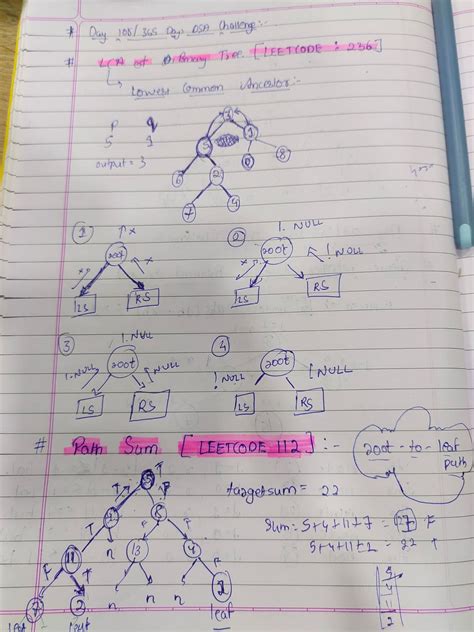 * Day 108/365 Days DSA Challenge:-
# LCA of Binary Tree [LEETCODE : 236]
Lowest Common Ancestor:-
P q
5 1
output = 3
3
5 1
6 2 0 8
7 4
① ↑ x
root
x x
LS RS
② !. NULL
root
x ! NULL
LS RS
③ !. NULL
root
!. NULL !. NULL
LS RS
④
root
! NULL ! NULL
LS RS
# Path Sum [LEETCODE 112] :-
root - to - leaf
path
targetsum = 22
sum: 5+4+11+7 = 27 F
5+4+11+2 = 22 T
5
T F
8
T F F
11 n 13 4
F T n n n F
7 2 2
leaf leaf leaf